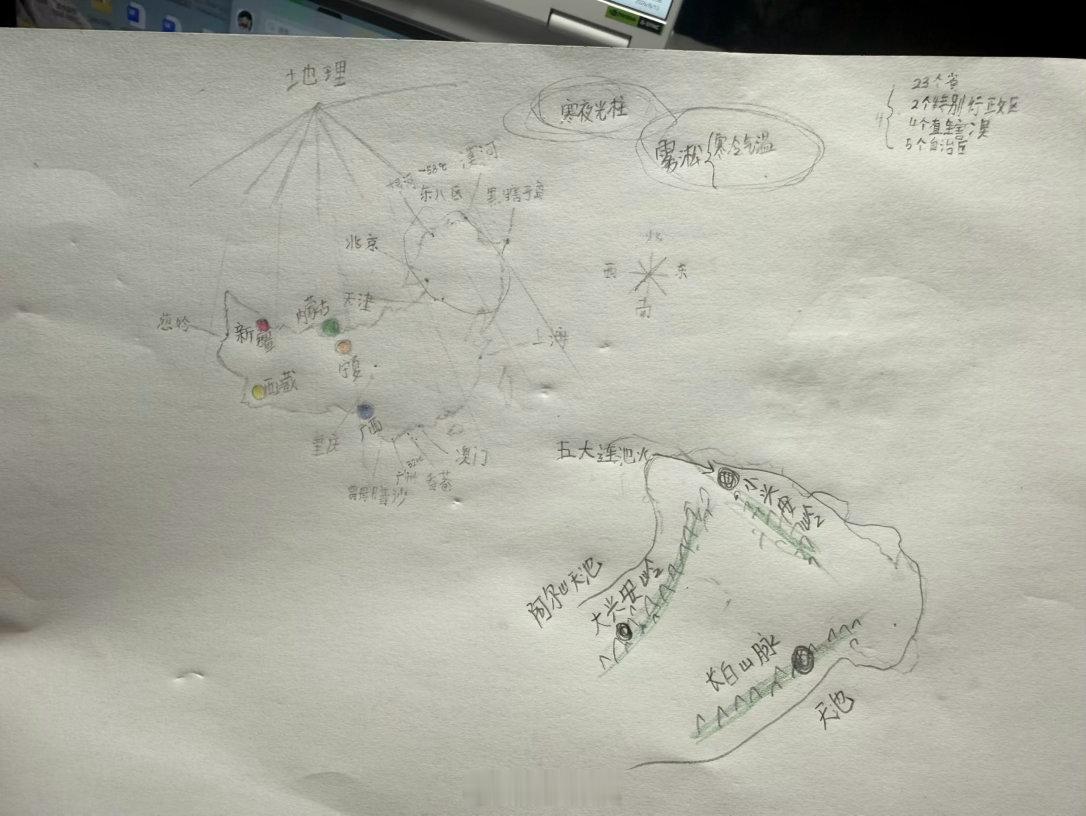 地理
寒夜光柱
雾凇{寒冷气温
4{
23个省
2个特别行政区
4个直辖
5个自治区
漠河
-53℃
东八区
黑瞎子岛
北京
北
西
东
南
天津
内蒙古
新疆
葱岭
宁夏
上海
西藏
广西
澳门
广州
五大连池火
小兴安岭
阿尔山天池
大兴安岭
长白山脉
天池